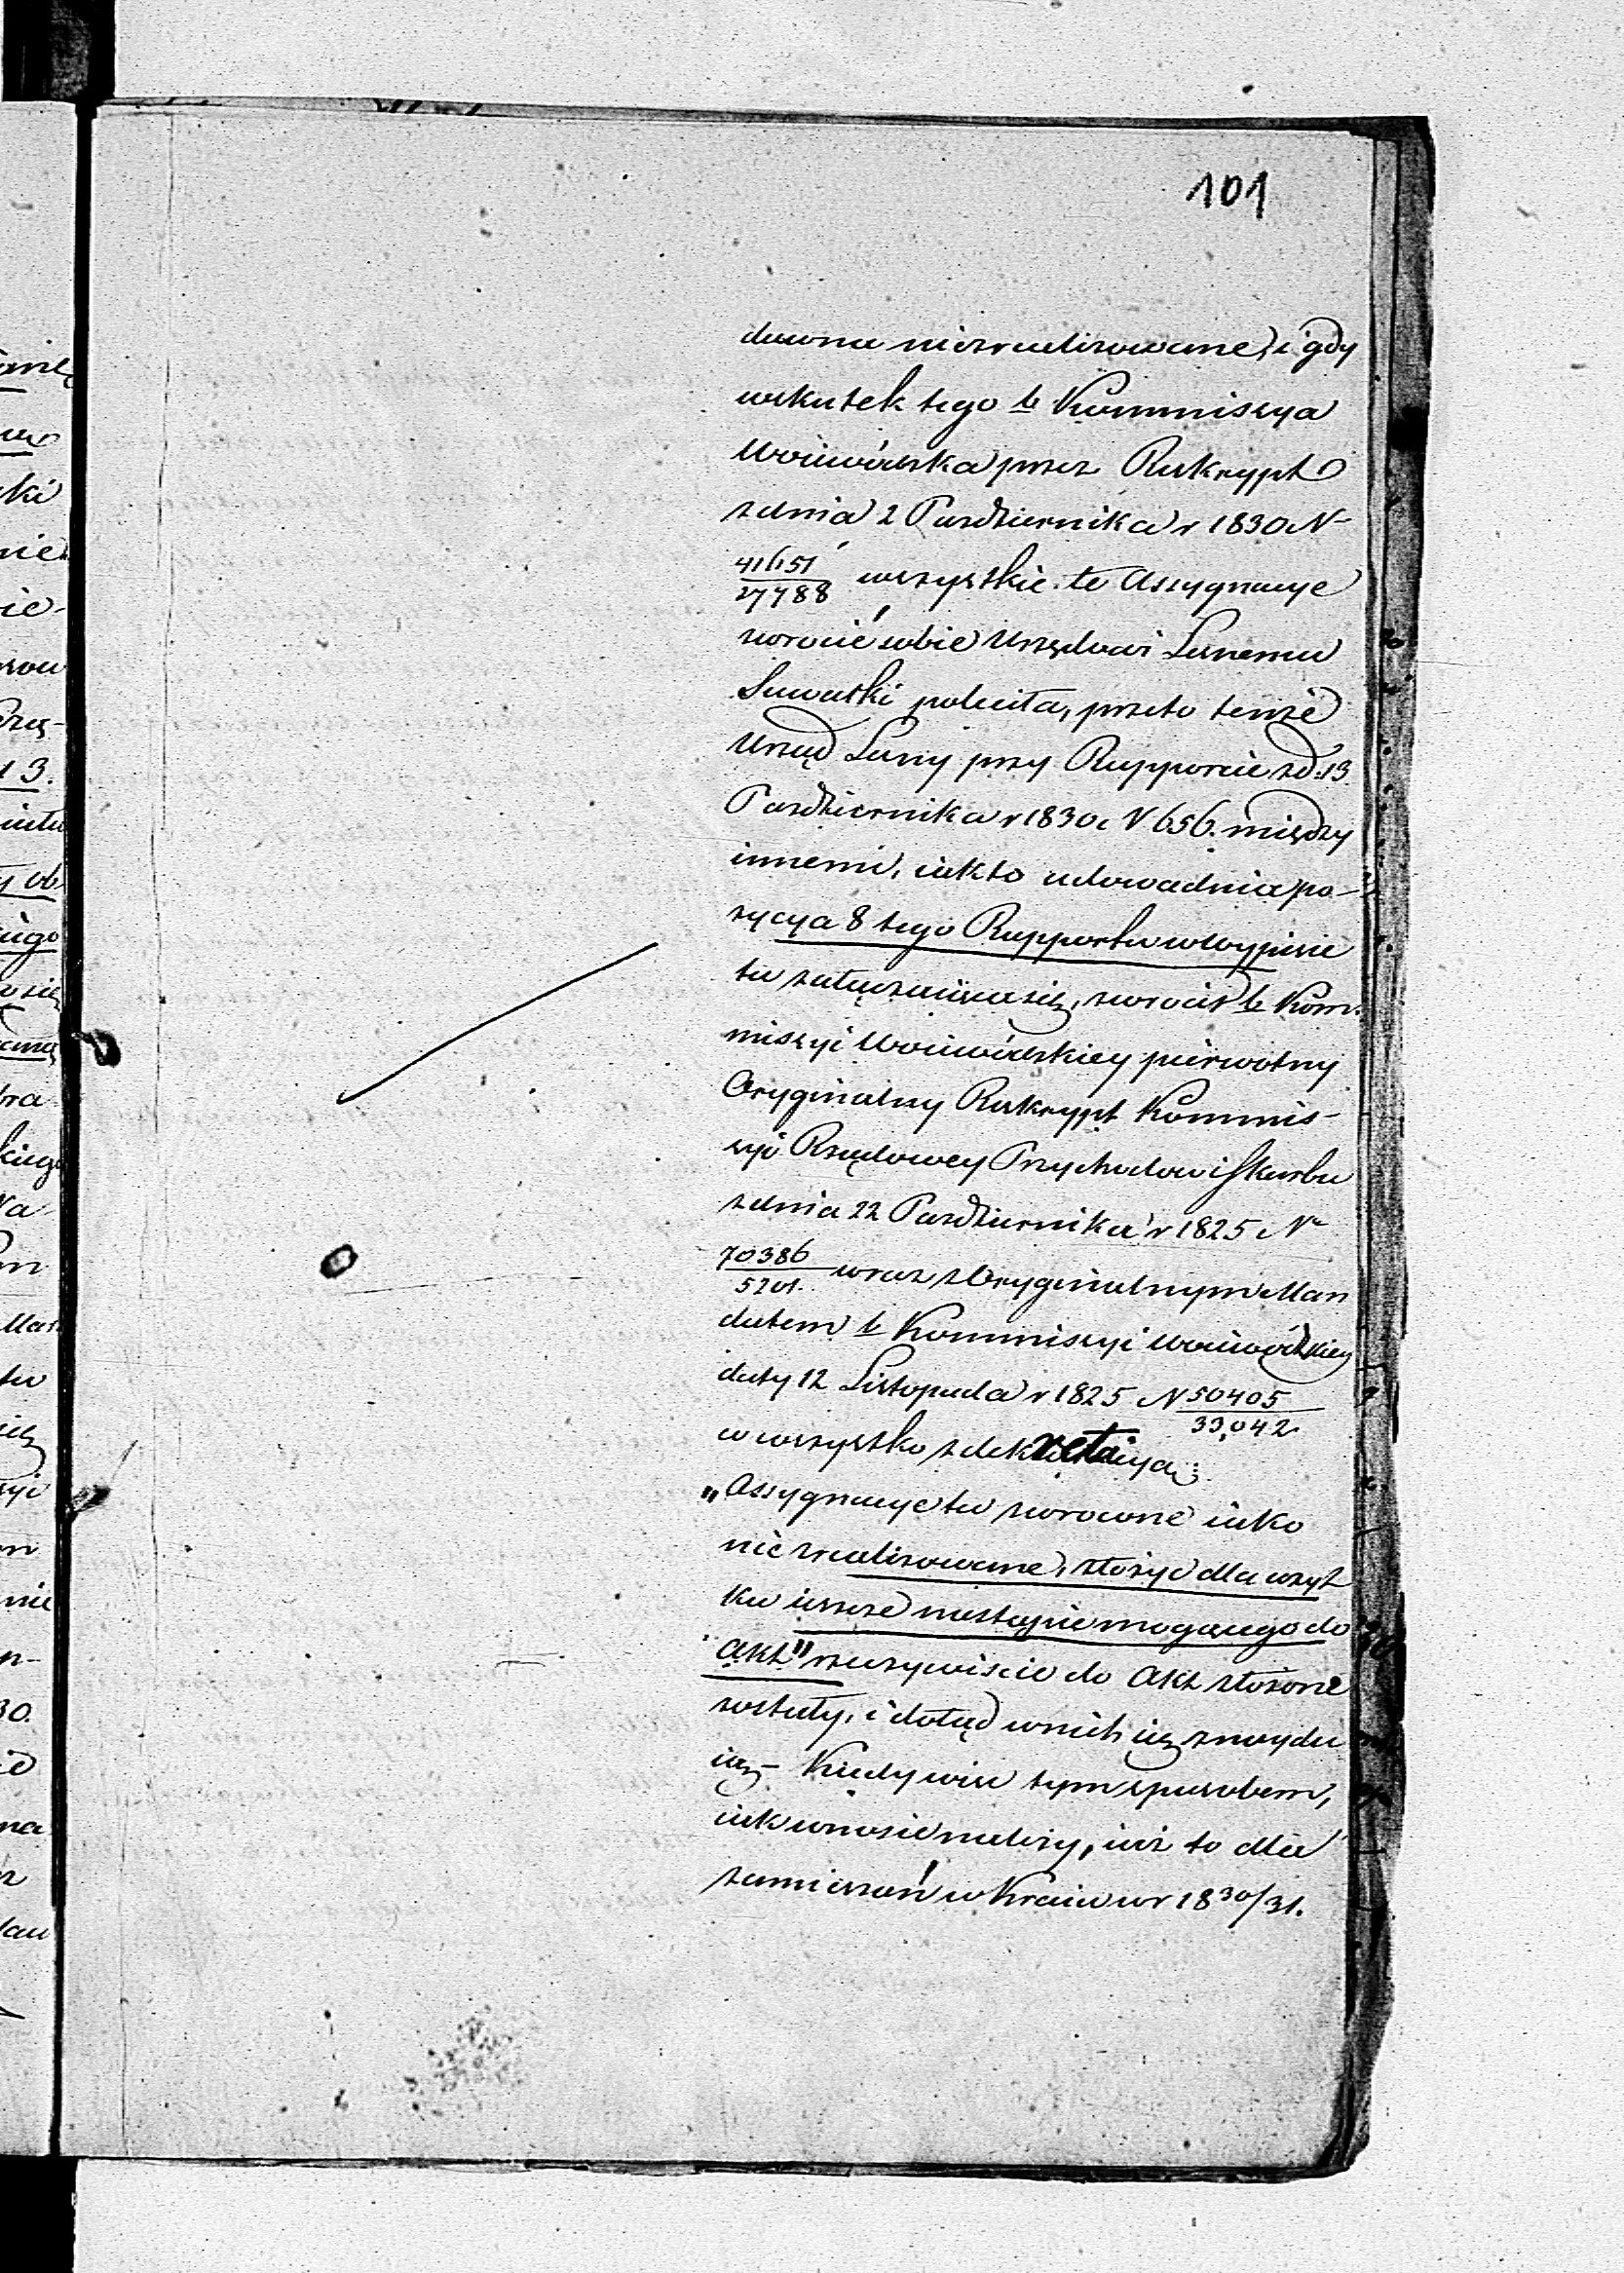 101
dawna niezrealizowane, i gdy
wskutek tego b Kommissya
Woiewódzka przez Reskrypt
z dnia 2 Października r 1830 N
41651/27788 wszystkie te Assygnacye
zwrócić sobie Urzędowi Leśnemu
Suwałki poleciła, przeto tenże
Urząd Leśny przy Rapporcie z d. 13
Października r 1830 N 656. między
innemi, iak to udowadnia po-
zycya 8 tego Rapportu w wypisie
tu załączaiąca się, zwrócił b Kom-
missyi Woiewódzkiey pierwotny
Oryginalny Reskrypt Kommis-
syi Rządowey Przychodow i Skarbu
z dnia 22 Października r 1825 N
70386/5201. wraz z Oryginalnym Man
datem b Kommissyi Woiewódzkiey
daty 12 Listopada r 1825 N 50405/33,042
co wszystko z dekretacyą:
„Assygnacye tu zwrocone iako
nie zrealizowane, złożyć dla użyt
ku ieszcze nastąpić mogącego do
Akt" rzeczywiście do Akt złożone
zostały, i dotąd w nich się znaydu
ią – Kiedy więc tym sposobem,
iak wnosić należy, iuż to dla
zamieszań w Kraiu w r 1830/31.